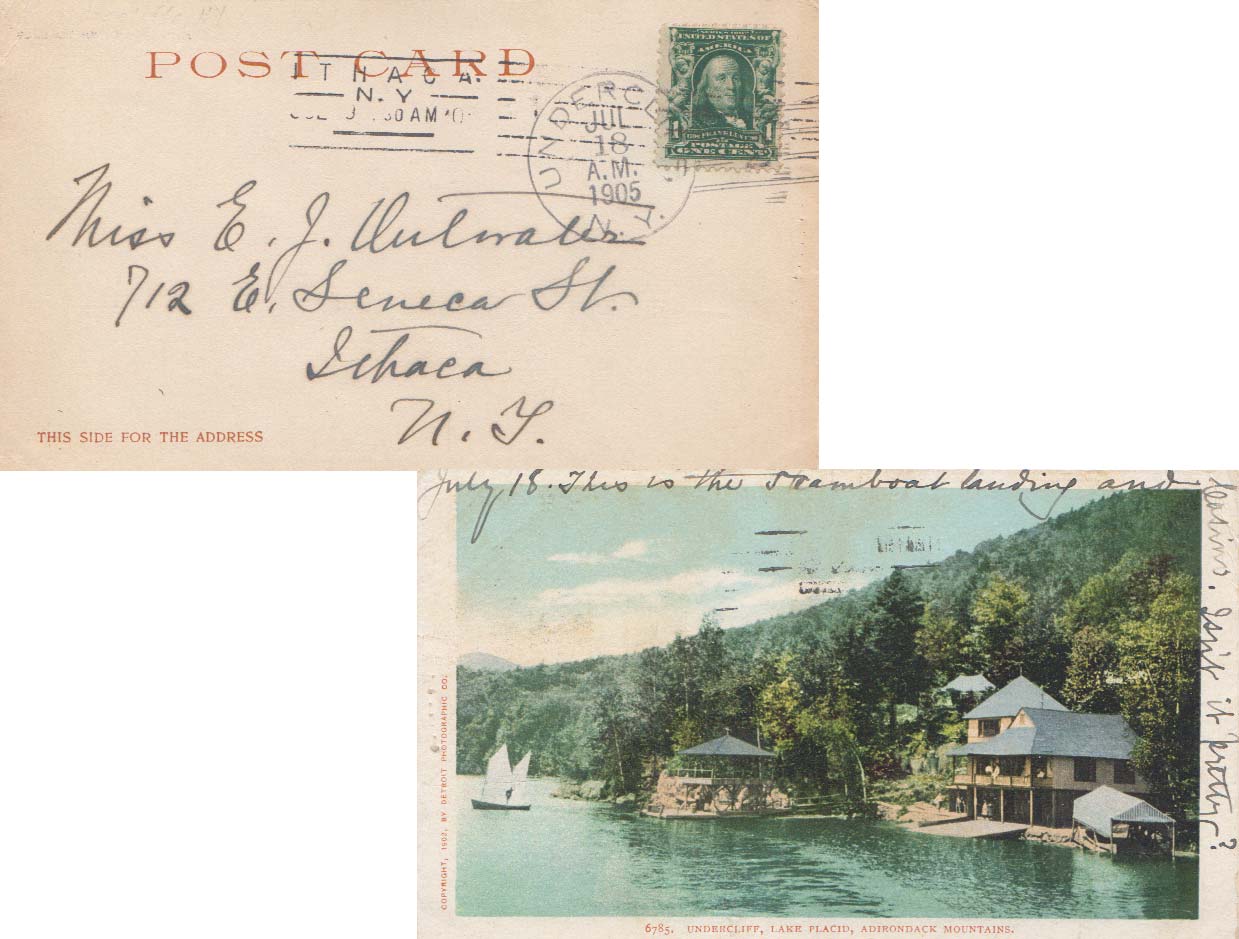 POST CARD
ITHACA.
N.Y.
30 AM
UNDERCL
JUL
18
A.M.
1905
N.Y.
SERIES 1902
UNITED STATES OF
AMERICA
1 FRANKLIN 1
POSTAGE
ONE CENT
Miss E. J. Outwater
712 E. Seneca St.
Ithaca
N. Y.
THIS SIDE FOR THE ADDRESS
July 18. This is the steamboat landing and
casino. Isn't it pretty?
COPYRIGHT, 1902, BY DETROIT PHOTOGRAPHIC CO.
6785. UNDERCLIFF, LAKE PLACID, ADIRONDACK MOUNTAINS.